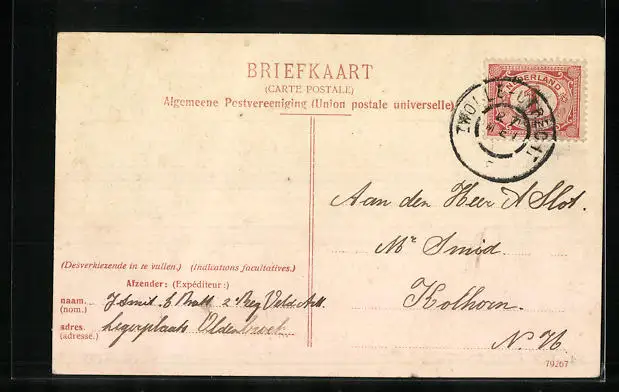 BRIEFKAART
(CARTE POSTALE)
Algemeene Postvereeniging (Union postale universelle)
NEDERLAND
ZWOLLE
Aan den Heer A Slot.
Mr Smid.
Kolhorn.
N. H.
(Desverkiezende in te vullen.) (Indications facultatives.)
Afzender: (Expéditeur:)
naam. J Smit. 6 Batt 2e Reg Veld Art.
(nom.)
adres. Legerplaats Oldenbroek
(adresse.)
79267